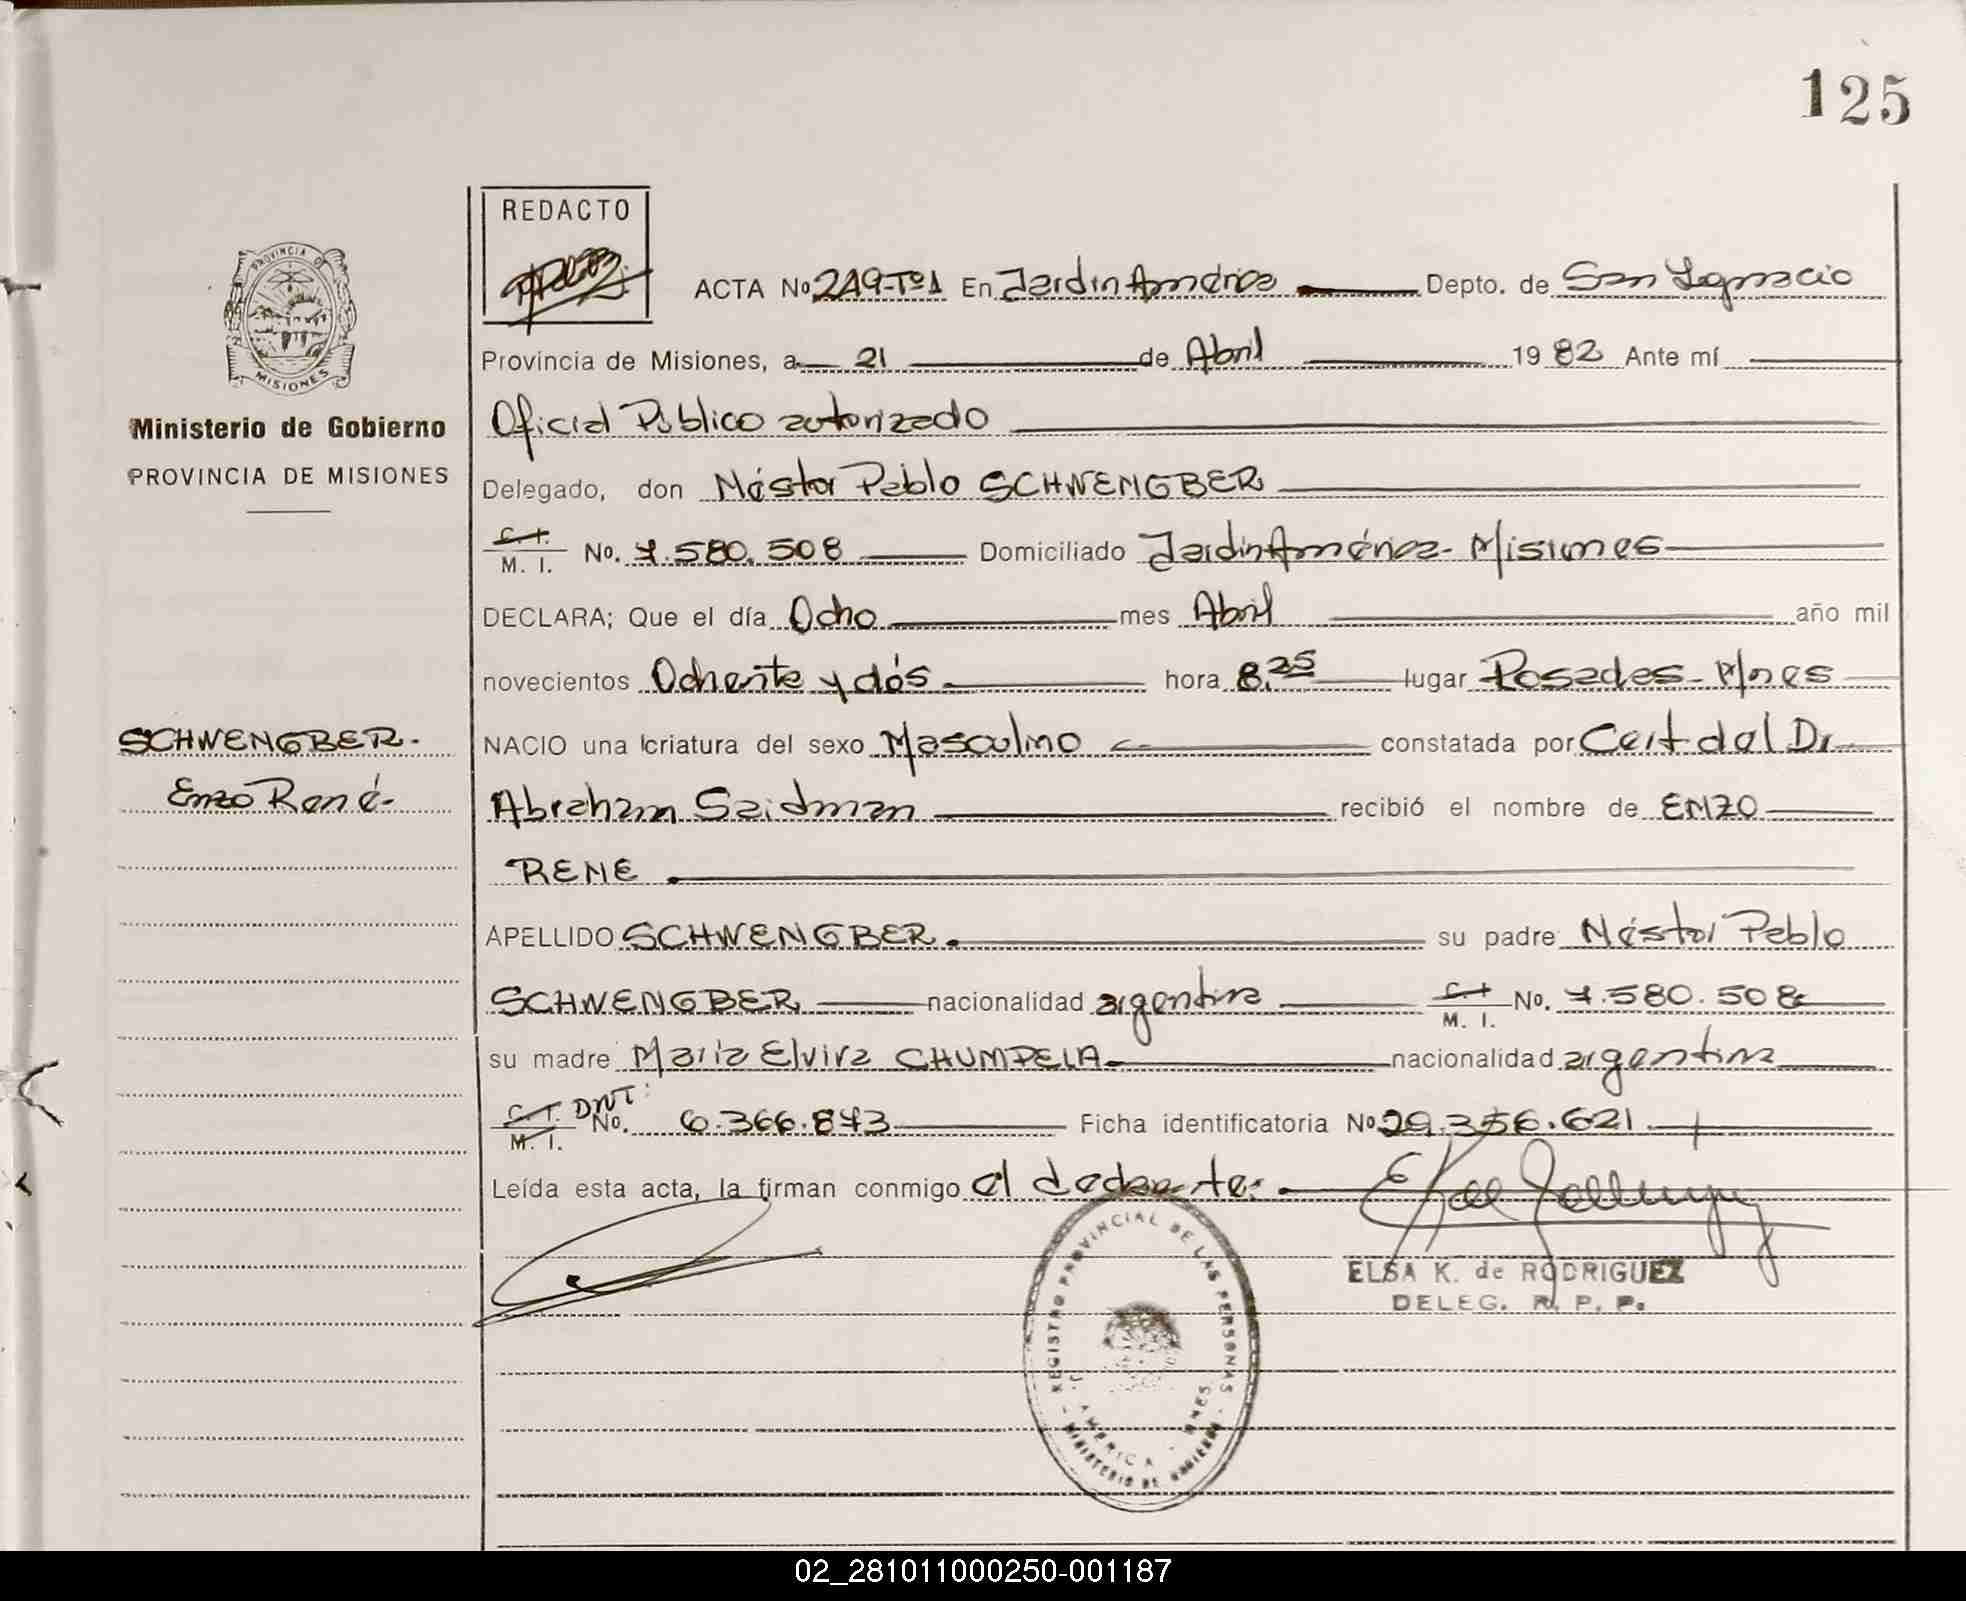 125
REDACTO
ACTA No 249-Tº1 En Jardín América Depto. de San Ignacio
PROVINCIA DE
MISIONES
Provincia de Misiones, a 21 de Abril 1982 Ante mí
Ministerio de Gobierno
Oficial Público autorizado
PROVINCIA DE MISIONES
Delegado, don Néstor Pablo SCHWENGBER
C. I.
M. I. No. 7.580.508 Domiciliado Jardín América- Misiones
DECLARA; Que el día Ocho mes Abril año mil
novecientos Ochenta y dós hora 8.25 lugar Posadas-Mnes
SCHWENGBER-
NACIO una criatura del sexo Masculino constatada por Cert del Dr
Enzo René-
Abraham Saidman recibió el nombre de ENZO
RENE
APELLIDO SCHWENGBER. su padre Néstor Pablo
SCHWENGBER nacionalidad argentina C. I.
M. I. No. 7.580.508
su madre María Elvira CHUMPELA nacionalidad argentina
C. I.
M. I. DNI: No. 6.366.873 Ficha identificatoria No 29.356.621
Leída esta acta, la firman conmigo el declarante.
REGISTRO PROVINCIAL DE LAS PERSONAS
J. AMERICA - MNES
MINISTERIO DE GOBIERNO
ELSA K. de RODRIGUEZ
DELEG. R. P. P.
02_281011000250-001187